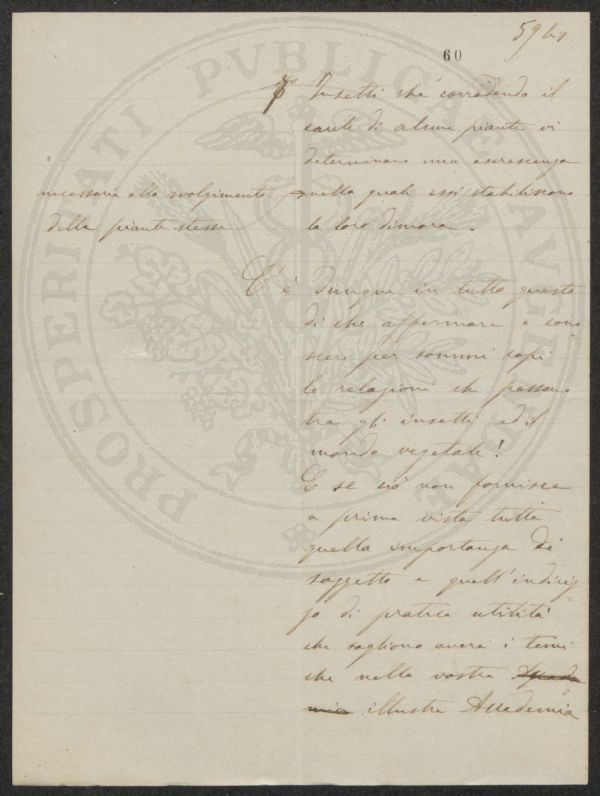 59 bis
60
Insetti che corrodendo il
caule di alcune piante vi
determinano una escrescenza
necessaria allo svolgimento
della piante stesse
nella quale essi stabiliscono
la loro dimora.
C'è dunque in tutto questo
di che affermare e cono
scere per sommi capi
le relazioni che passano
tra gl' insetti ed il
mondo vegetale!
E se ciò non fornisce
a prima vista tutta
quella importanza di
soggetto e quell' indiriz
zo di pratica utilità
che sogliono avere i temi
che nella vostra Accade
mia illustre Accademia
PROSPERITATI PVBLICAE AVGENDAE